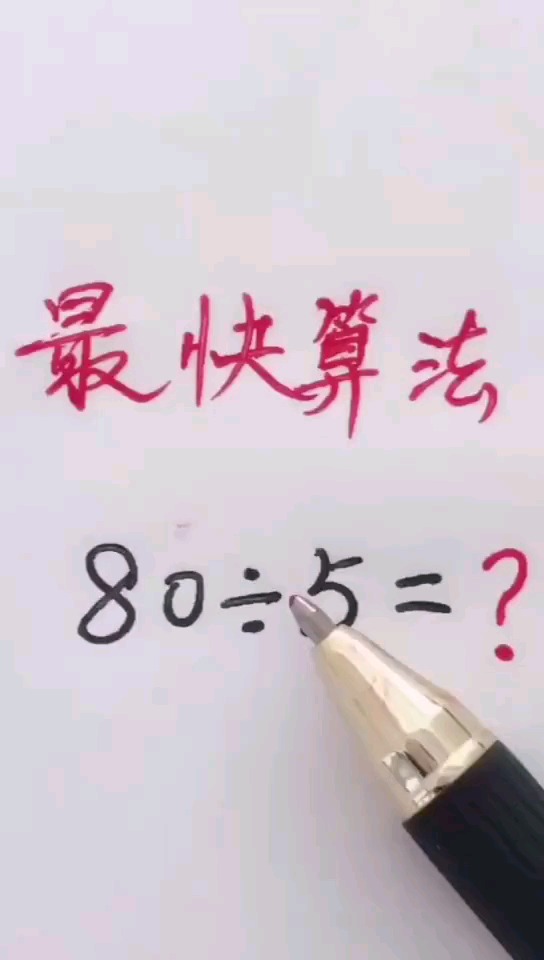 最快算法
80÷5=?